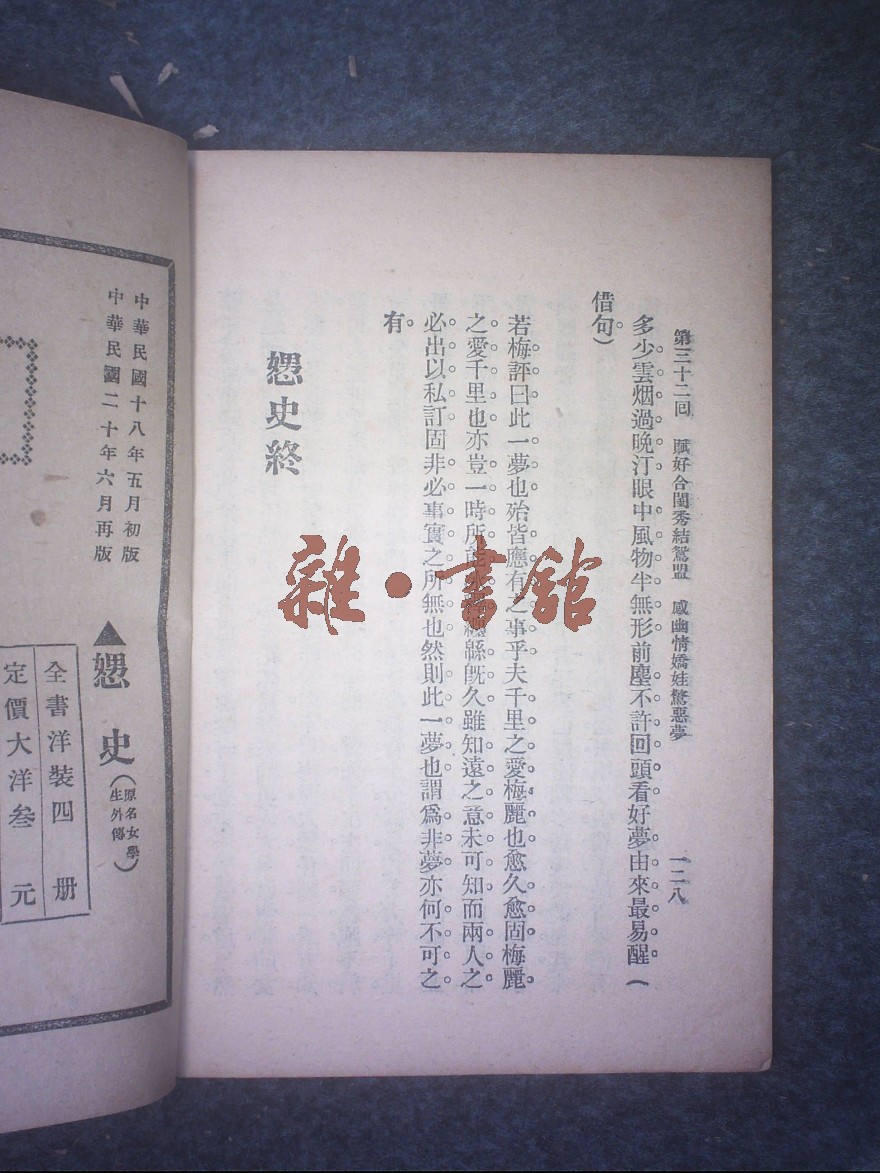 第三十二回　賦好合閨秀結鴛盟　感幽情嬌娃驚惡夢　一二八
多少雲烟過晚汀眼中風物半無形前塵不許回頭看好夢由來最易醒（
借句）
若梅評曰此一夢也殆皆應有之事乎夫千里之愛梅麗也愈久愈固梅麗
之愛千里也亦豈一時所能緜旣久雖知遠之意未可知而兩人之
必出以私訂固非必事實之所無也然則此一夢也謂爲非夢亦何不可之
有
史終
雜・書館
中華民國十八年五月初版
中華民國二十年六月再版
▲史（原名女學生外傳）
全書洋裝四册
定價大洋叁元